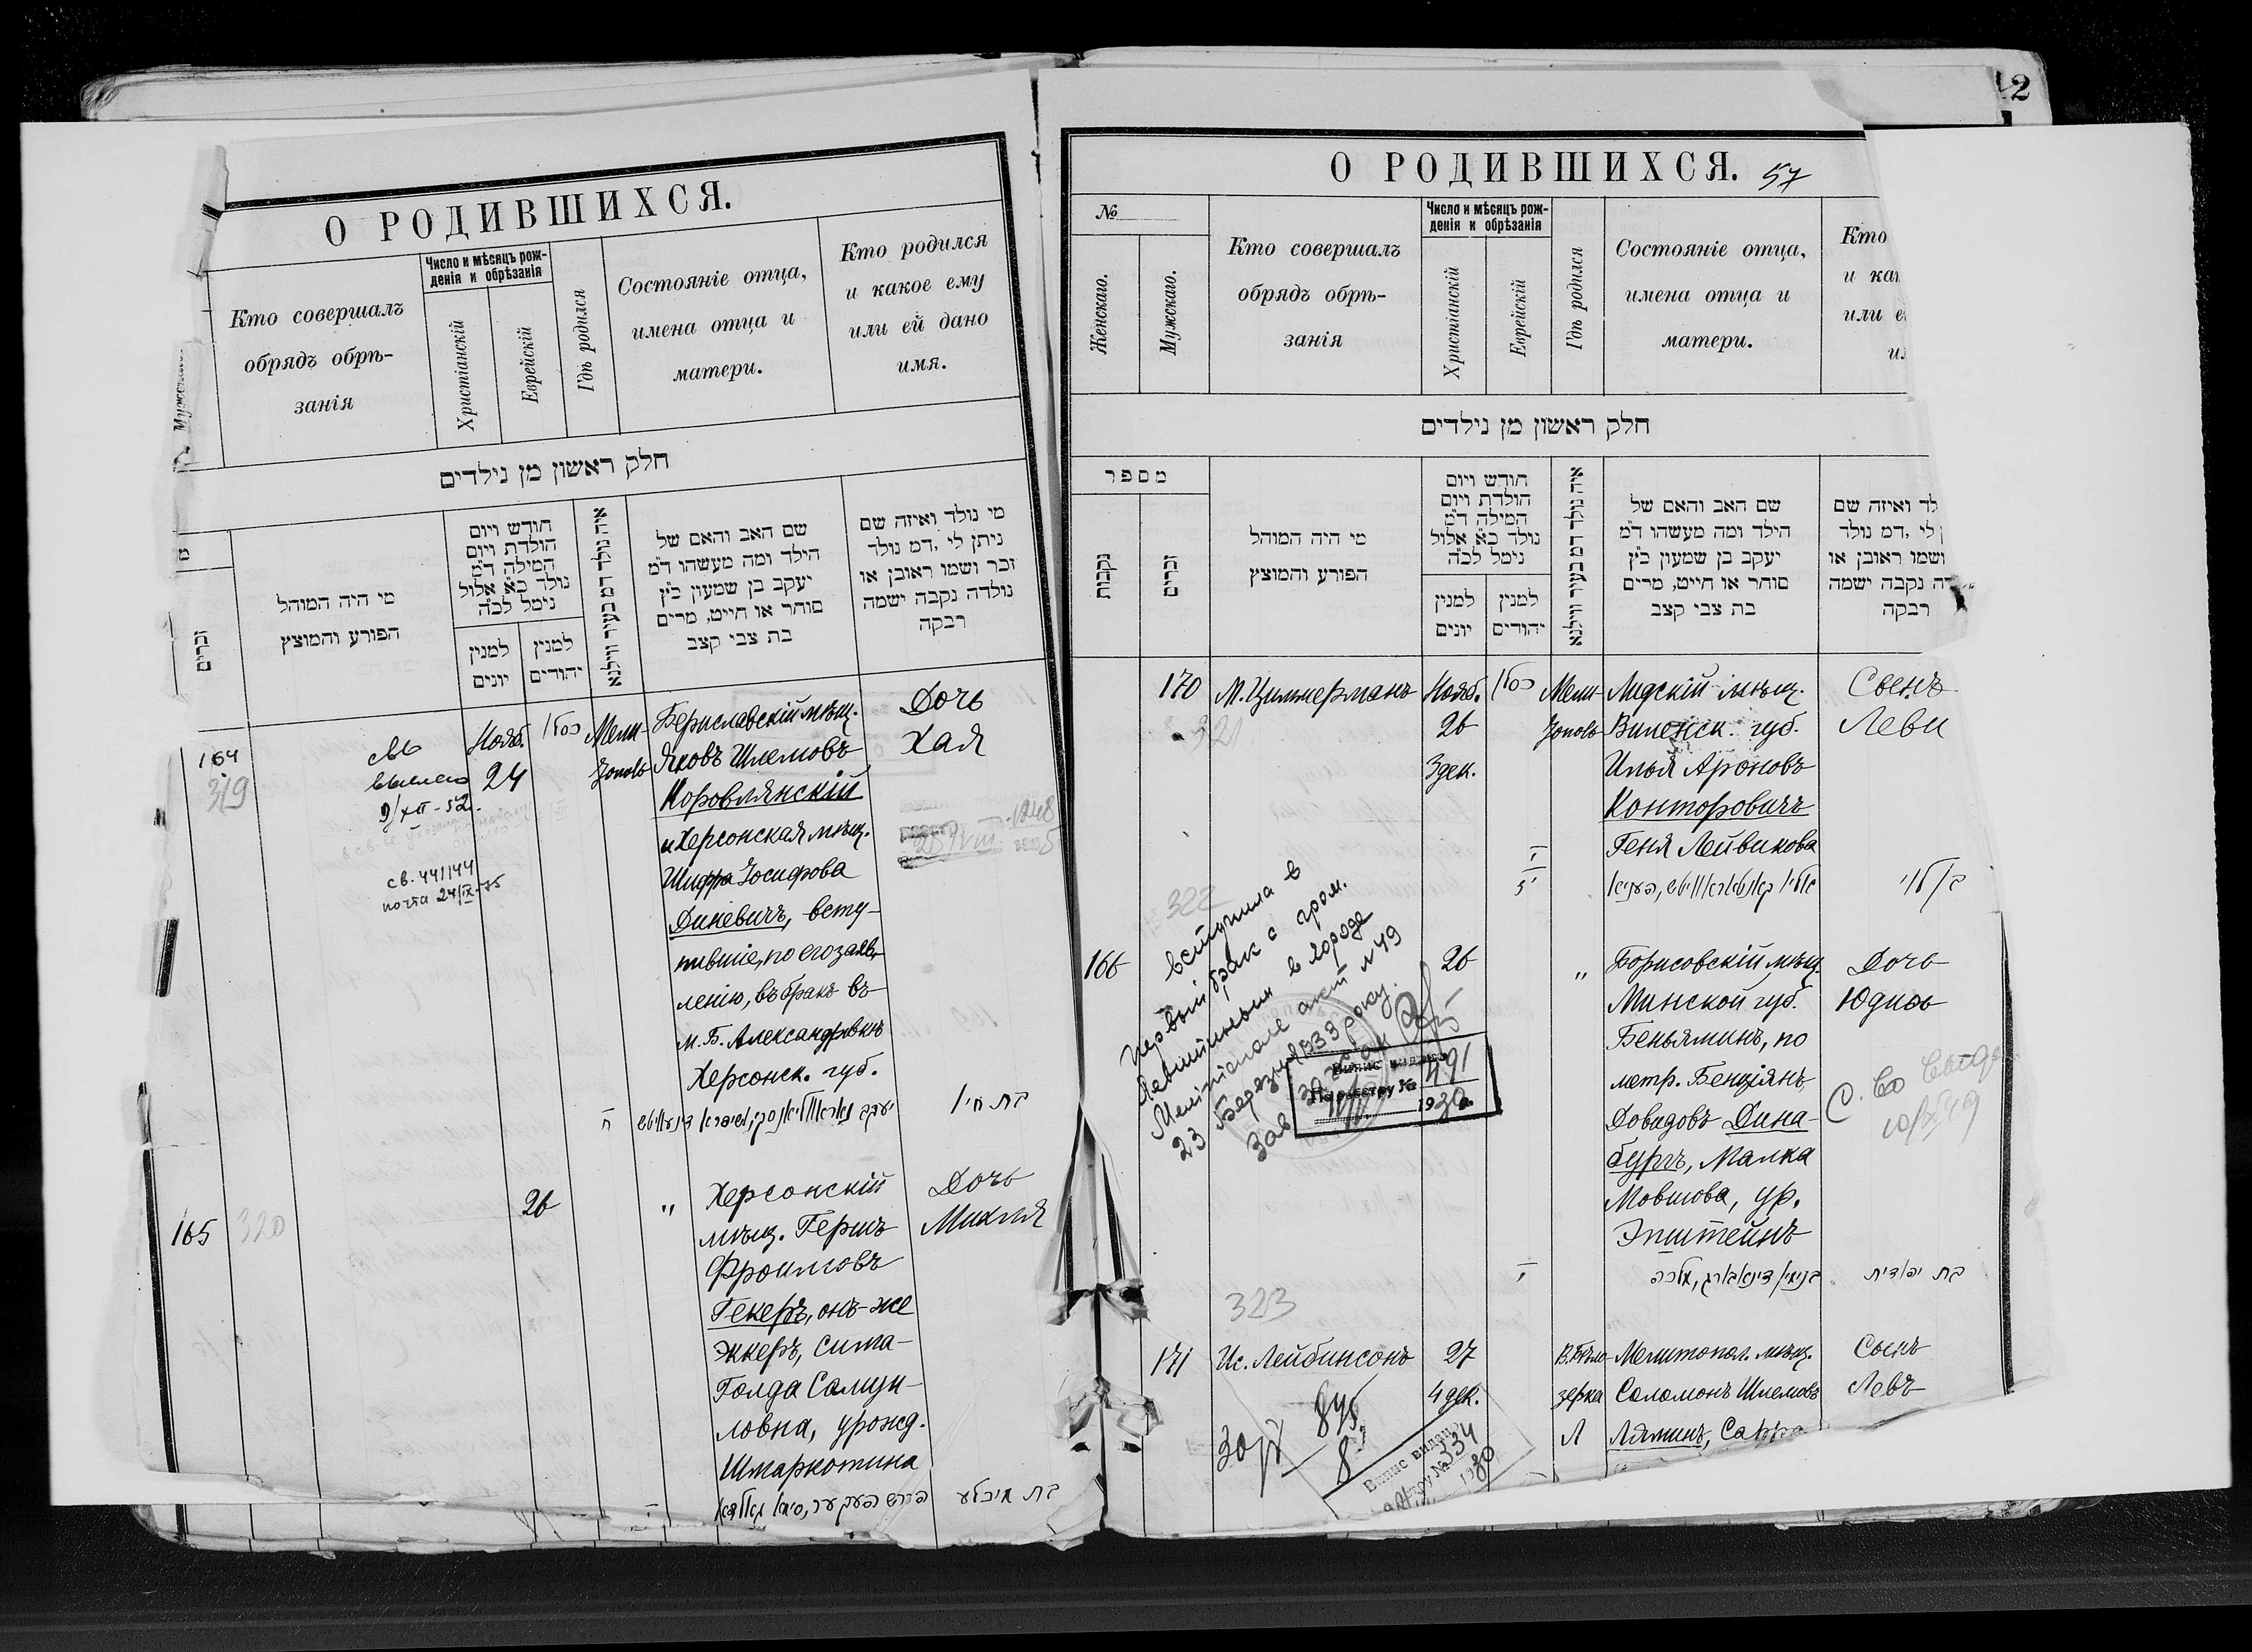 2
О РОДИВШИХСЯ.
Мужскаго.
Кто совершалъ
обрядъ обрѣ-
занія
Число и мѣсяцъ рож-
денія и обрѣзанія
Христіанскій
Еврейскій
Гдѣ родился
Состояніе отца,
имена отца и
матери.
Кто родился
и какое ему
или ей дано
имя.
חלק ראשון מן נילדים
זכרים
מי היה המוהל
הפורע והמוצץ
חודש ויום
הולדת ויום
המילה ד״מ
נולד כ״א אלול
נימל לכ״ה
למנין
יונים
למנין
יהודים
איה נולד דמ בעיר ווילנא
שם האב והאם של
הילד ומה מעשהו ד״מ
יעקב בן שמעון כ״ץ
סוחר או חייט, מרים
בת צבי קצב
מי נולד ואיזה שם
ניתן לי ,דמ נולד
זכר ושמו ראובן או
נולדה נקבה ישמה
רבקה
164
319
9/XII-52.
св. 441144
почта 24/IX-75
Нояб.
24
Мели-
Бериславскій мѣщ.
Яковъ Шлемовъ
Коровлянскій
и Херсонская мѣщ.
Шифра Іосифова
Диневичъ, всту-
пившіе, по его заяв-
ленію, въ бракъ въ
м. Б. Александровкѣ
Херсонск. губ.
Дочь
Хая
165
320
26
"
Херсонскій
мѣщ. Гершъ
Фроимовъ
Гекеръ, онъ-же
Эккеръ, Сима-
Голда Самуи-
ловна, урожд.
Шмаркотина
Дочь
Михля
О РОДИВШИХСЯ. 57
№
Женскаго.
Мужскаго.
Кто совершалъ
обрядъ обрѣ-
занія
Число и мѣсяцъ рож-
денія и обрѣзанія
Христіанскій
Еврейскій
Гдѣ родился
Состояніе отца,
имена отца и
матери.
Кто
חלק ראשון מן נילדים
מספר
נקבות
זכרים
מי היה המוהל
הפורע והמוצץ
חודש ויום
הולדת ויום
המילה ד״מ
נולד כ״א אלול
נימל לכ״ה
למנין
יונים
למנין
יהודים
איה נולד דמ בעיר ווילנא
שם האב והאם של
הילד ומה מעשהו ד״מ
יעקב בן שמעון כ״ץ
סוחר או חייט, מרים
בת צבי קצב
לד ואיזה שם
ן לי ,דמ נולד
ושמו ראובן או
דה נקבה ישמה
רבקה
170
321
М. Цимерманъ
Нояб.
26
3 дек.
Мели-
Лидскій мѣщ.
Виленск. губ.
Илья Ароновъ
Конторовичъ
Геня Лейвикова
Сынъ
Леви
322
166
вступила в
первый брак с гром.
в городе
Мелітополе акт № 49
23 Березня 1933 року.
Зав
Випис видано
По реєстру № 491
1930 р.
26
"
Борисовскій мѣщ.
Минской губ.
Беньяминъ, по
метр. Бенціянъ
Довидовъ Дина-
бургъ, Малка
Мовшова, ур.
Эпштейнъ
Дочь
Юдись
בת יהודית
323
171
Ис. Лейбинсонъ
27
4 дек.
В. Бѣло-
зерка
Мелитопол. мѣщ.
Саломонъ Шлемовъ
Лямин, Сарра
Сынъ
Левъ
Випис видано
№ 334
1930